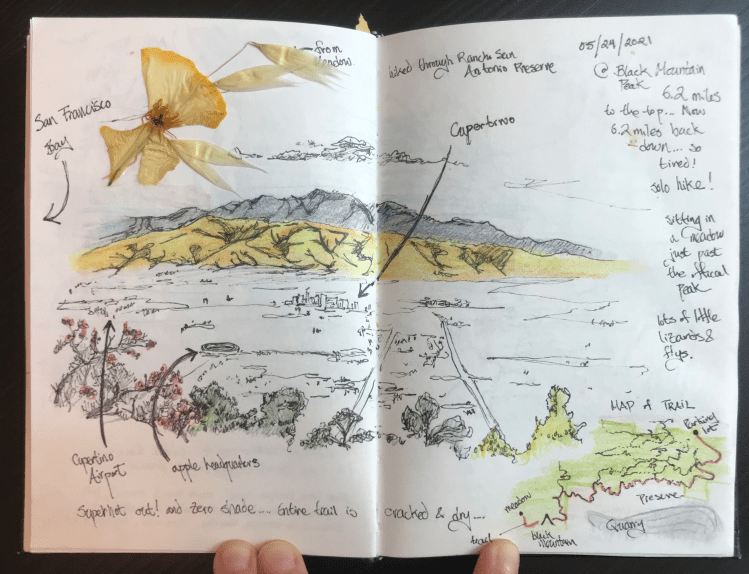 from
meadow
San Francisco
Bay
Cupertino
Cupertino
Airport
apple headquaters
Super hot out! and zero shade.... Entire trail is cracked & dry....
hiked through Rancho San
Antonio Preserve
05/29/2021
@ Black Mountain
Peak
6.2 miles
to the top... Now
6.2 miles back
down.... so
tired!
solo hike!
sitting in
a meadow
just past
the offical
peak
lots of little
lizards &
flys.
MAP of TRAIL
Parking
lot
Preserve
meadow
black
mountain
Quarry